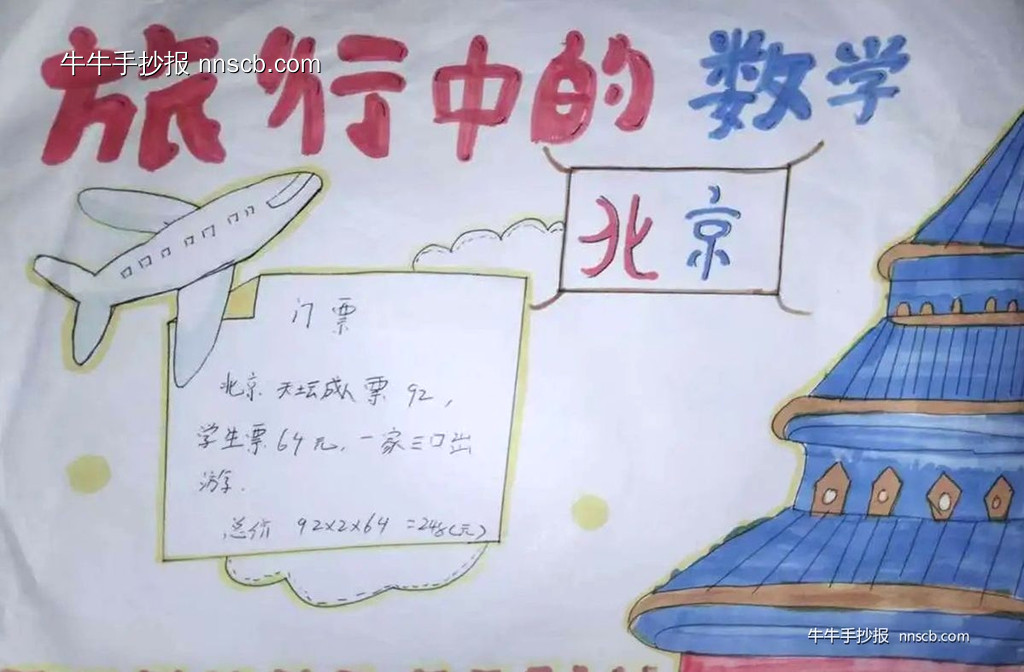 旅行中的数学
牛牛手抄报 nnscb.com
北京
门票
北京天坛成人票 92，
学生票 64元，一家三口出
游.
总价 92×2×64 =248(元)
牛牛手抄报 nnscb.com